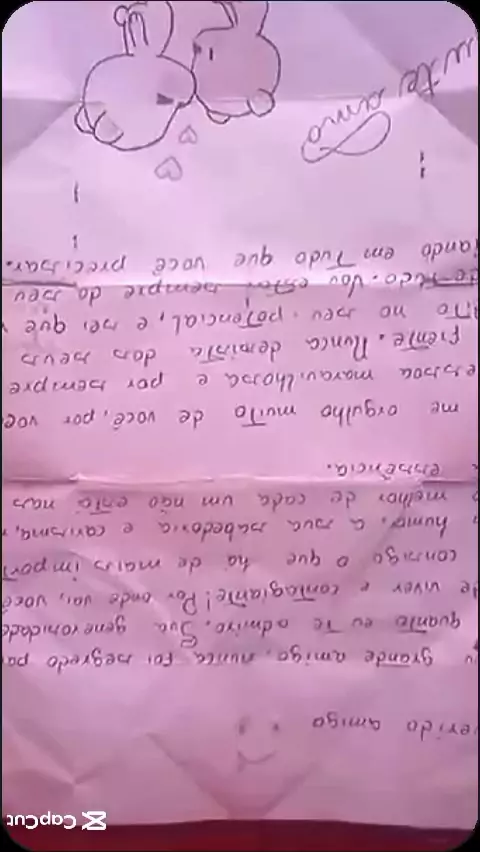 erido amigo
grande amigo, nunca foi segredo pa
quanto eu te admiro. Sua generosidade
de viver é contagiante! Por onde vai, você
consigo o que há de mais import
humor, a sua sabedoria e carisma,
o melhor de cada um não está nas
essência.
me orgulho muito de você, por voc
essoa maravilhosa e por sempre
frente. Nunca desista dos seus
dito no seu potencial, e sei que v
de tudo. Vou estar sempre do seu
iando em tudo que você precisar.
te amo
CapCut